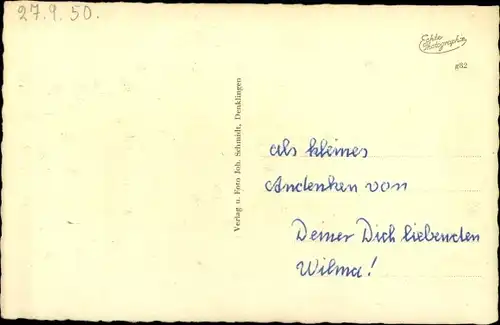 27.9.50.
Echte
Photographie
852
Verlag u. Foto Joh. Schmidt, Denklingen
als kleines
Andenken von
Deiner Dich liebenden
Wilma!